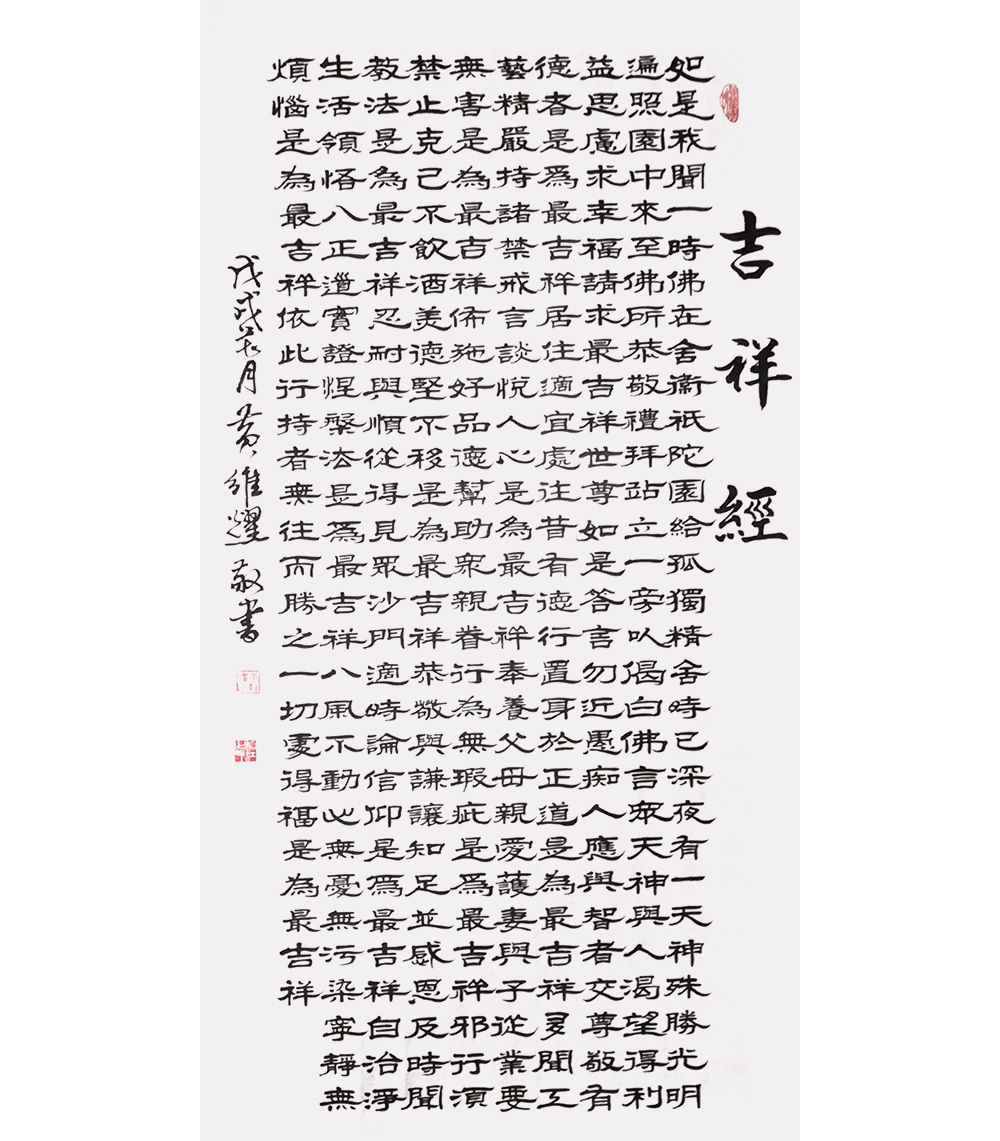 吉祥經
如是我聞一時佛在舍衛祇陀園給孤獨精舍時已深夜有一天神殊勝光明
遍照園中來至佛所恭敬禮拜站立一旁以偈白佛言眾天神與人渴望得利
益思慮求幸福請求最吉祥世尊如是答言勿近愚痴人應與智者交尊敬有
德者是為最吉祥居住適宜處往昔有德行置身於正道是為最吉祥多聞工
藝精嚴持諸禁戒言談悅人心是為最吉祥奉養父母親愛護妻與子從業要
無害是為最吉祥佈施好品德幫助眾親眷行為無瑕疵是為最吉祥邪行須
禁止克己不飲酒美德堅不移是為最吉祥恭敬與謙讓知足並感恩及時聞
教法是為最吉祥忍耐與順從得見眾沙門適時論信仰是為最吉祥自治淨
生活領悟八正道實證涅槃法是為最吉祥八風不動心無憂無污染寧靜無
煩惱是為最吉祥依此行持者無往而勝之一切處得福是為最吉祥
戊戌月黃維耀敬書